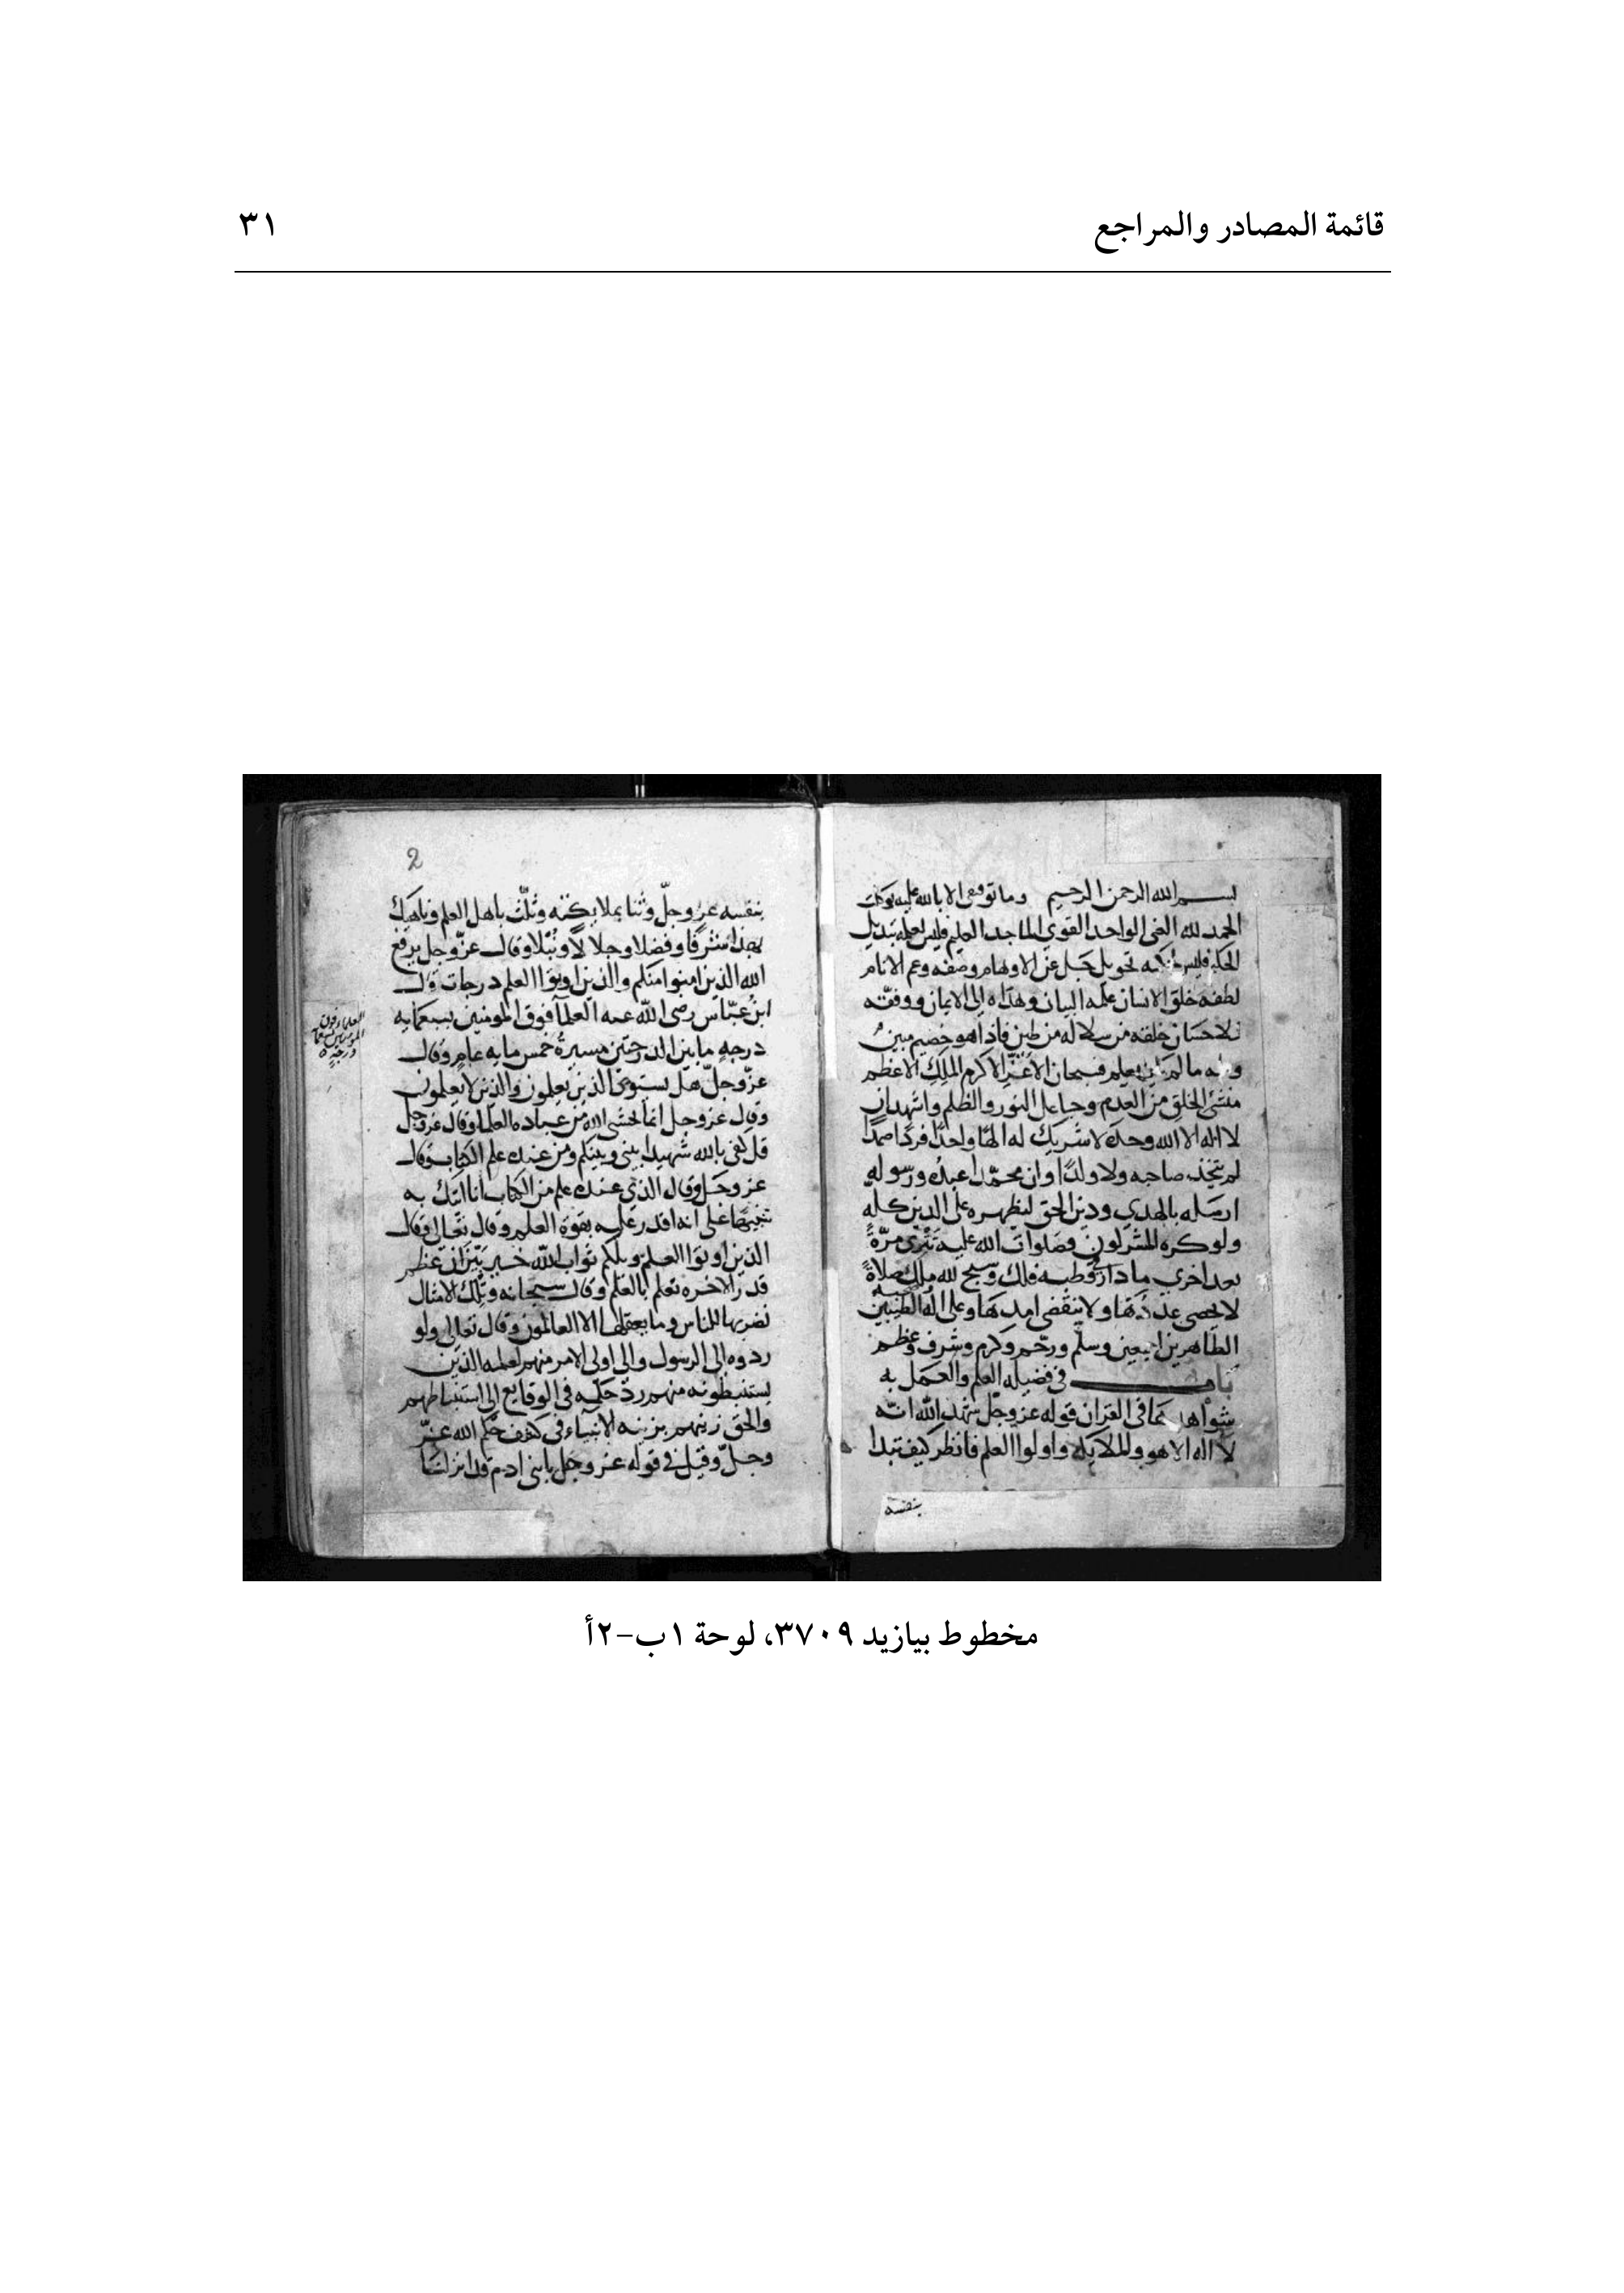 قائمة المصادر والمراجع
٣١
بسم الله الرحمن الرحيم وما توفيقي الا بالله عليه توكلت
الحمد لله الغنى الواحد القوي الماجد العليم فليس لعلمه تبديل
الحكم فليس لحكمه تحويل جل عن الاوهام وصفه وعم الانام
لطفه خلق الانسان علمه البيان وهداه الى الايمان ووفقه
للاحسان خلقه من سلاله من طين فاذا هو خصيم مبين
ما لم يكن يعلم فسبحان الاعز الاكرم الملك الاعظم
منشئ الخلق من العدم وجاعل النور والظلم واشهد ان
لا اله الا الله وحده لا شريك له الها واحدا فردا صمدا
لم يتخذ صاحبه ولا ولدا وان محمدا عبده ورسوله
ارسله بالهدي ودين الحق ليظهره على الدين كله
ولو كره المشركون فصلوات الله عليه تترى مرة
بعد اخري ما دار في قطبه فلك وسبح لله ملك صلاة
لا يحصى عددها ولا ينقضى امدها وعلى اله الطيبين
الطاهرين اجمعين وسلم ورحم وكرم وشرف وعظم
باب في فضيله العلم والعمل به
شواهد كما في القران قوله عز وجل شهد الله انه
لا اله الا هو والملايكه واولوا العلم فانظر كيف تبدا
بنفسه
2
بنفسه عز وجل وثنا بملايكته وثلث باهل العلم وناهيك
بهذا شرفا وفضلا وجلالا ونبلا وقال عز وجل يرفع
الله الذين امنوا منكم والذين اوتوا العلم درجات قال
ابن عباس رضى الله عنه العلما فوق المومنين بسبعمايه
درجه ما بين الدرجتين مسيرة خمس مايه عام وقال
عز وجل هل يستوى الذين يعلمون والذين لا يعلمون
وقال عز وجل انما يخشى الله من عباده العلما وقال عز وجل
قل كفى بالله شهيدا بيني وبينكم ومن عنده علم الكتاب وقال
عز وجل وقال الذي عنده علم من الكتاب انا اتيك به
تنبيها على انه اقدر عليه بقوة العلم وقال تعالى وقال
الذين اوتوا العلم ويلكم ثواب الله خير بين ان عظم
قدر الاخره تعلم بالعلم وقال سبحانه وتلك الامثال
نضربها للناس وما يعقلها الا العالمون وقال تعالى ولو
ردوه الى الرسول والى اولى الامر منهم لعلمه الذين
يستنبطونه منهم رد حكمه في الوقايع الى استنباطهم
والحق رتبتهم برتبة الانبياء في كشف حكم الله عز
وجل وقيل في قوله عز وجل يا بني ادم قد انزلنا
العلما فوق
المومنين بسبعماية
درجة
مخطوط بيازيد ٣٧٠٩، لوحة ١ب-٢أ